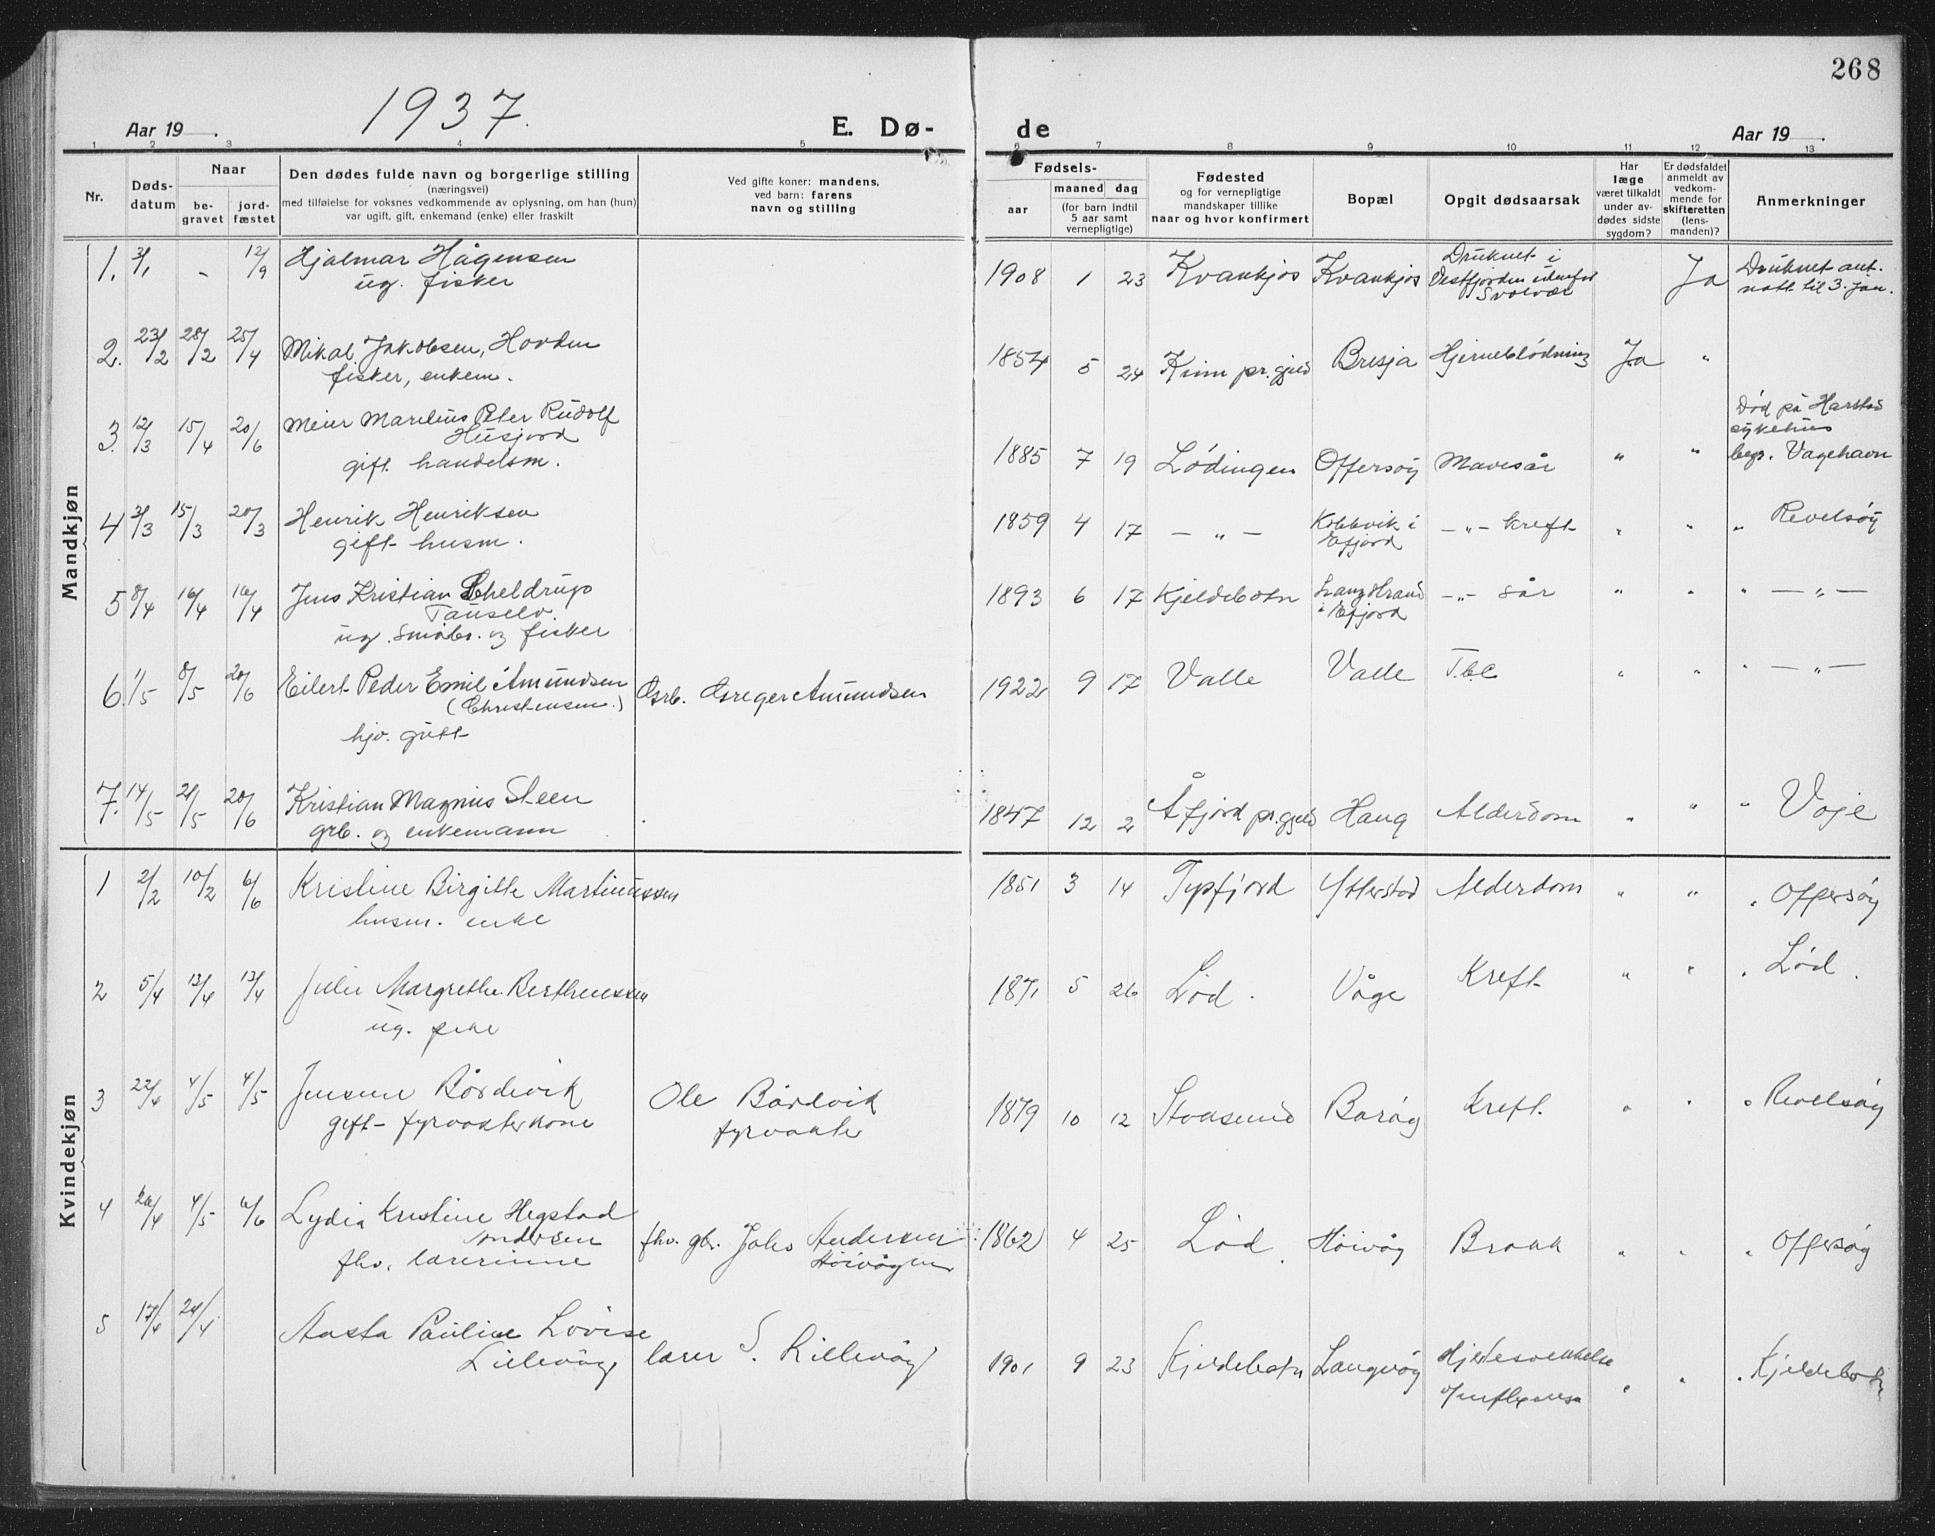 268
1937.
Aar 19 .
E. Dø-
de
Aar 19 .
1 2 3 4 5 6 7 8 9 10 11 12 13
Nr.
Døds-
datum
Naar
be-
gravet
jord-
fæstet
Den dødes fulde navn og borgerlige stilling
(næringsvei)
med tilføielse for voksnes vedkommende av oplysning, om han (hun)
var ugift, gift, enkemand (enke) eller fraskilt
Ved gifte koner: mandens,
ved barn: farens
navn og stilling
Fødsels-
aar
maaned dag
(for barn indtil
5 aar samt
vernepligtige)
Fødested
og for vernepligtige
mandskaper tillike
naar og hvor konfirmert
Bopæl
Opgit dødsaarsak
Har
læge
været tilkaldt
under av-
dødes sidste
sygdom?
Er dødsfaldet
anmeldt av
vedkom-
mende for
skifteretten
(lens-
manden)?
Anmerkninger
Mandkjøn
1. 3/1 - 12/9 Hjalmar Hågensen
ug. fisker
1908 1 23 Kvankjos Kvankjos Druknet i
Vestfjorden utenfor
Svolvær
Ja Druknet ant.
natt til 3. jan.
2. 23/2 28/2 25/4 Mikal Jakobsen, Hovden
fisker, enkem.
1854 5 24 Kinn pr.gjeld Bresja Hjerneblødning Ja "
3. 12/3 15/4 20/6 Meier Marelius Peter Rudolf
Husjord
gift handelsm.
1885 7 19 Lødingen Offersøy Mavesår " " Død på Harstad
sykehus
begr. Vagehavn
4 3/3 15/3 20/3 Henrik Henriksen
gift husm.
1859 4 17 - " - Kobbvik i
Efjord
- " - kreft " " " Revelsøy
5 8/4 16/4 16/4 Jens Kristian Scheldrup
ug. småbr. og fisker
1893 6 17 Kjeldebotn Langstrand
i Efjord
- " - sår " " " - " -
6. 1/5 8/5 20/6 Eilert Peder Emil Amundsen
(Christensen.)
hjv. gutt
Grb. Greger Amundsen
1922 9 17 Valle Valle T.b.c " " " - " -
7. 14/5 21/5 20/6 Kristian Magnus Steen
grb. og enkemann
1847 12 2 Åfjord pr.gjeld Haug Alderdom " " " Voje
Kvindekjøn
1 2/2 10/2 6/6 Kristine Birgitte Martinussen
husm. enke
1851 3 14 Typfjord Ytterstad Alderdom " " " Offersøy
2 5/4 13/4 13/4 Julie Margrethe Bertheussen
ug. pike
1871 5 26 Lød. Våge Kreft " " " Lød.
3 22/4 4/5 4/5 Jensine Bårdvik
gift fyrvokterkone
Ole Bårdvik
fyrvokter
1879 10 12 Barøy Kreft. " " " Revelsøy
4 26/4 4/5 6/6 Lydia Kristine Hegstad
Andersen
fhv. lærerinne
fhv. gbr. Johs Andersen
Høivågen
1862 4 25 Lød. Høivåg Brokk " " " Offersøy
5 17/4 24/4 Aasta Pauline Lovise
Lillevåg
lærer S. Lillevåg
1901 9 23 Kjeldebotn Langvåg Hjertesvekkelse
o/influensa
" " " Kjeldebotn